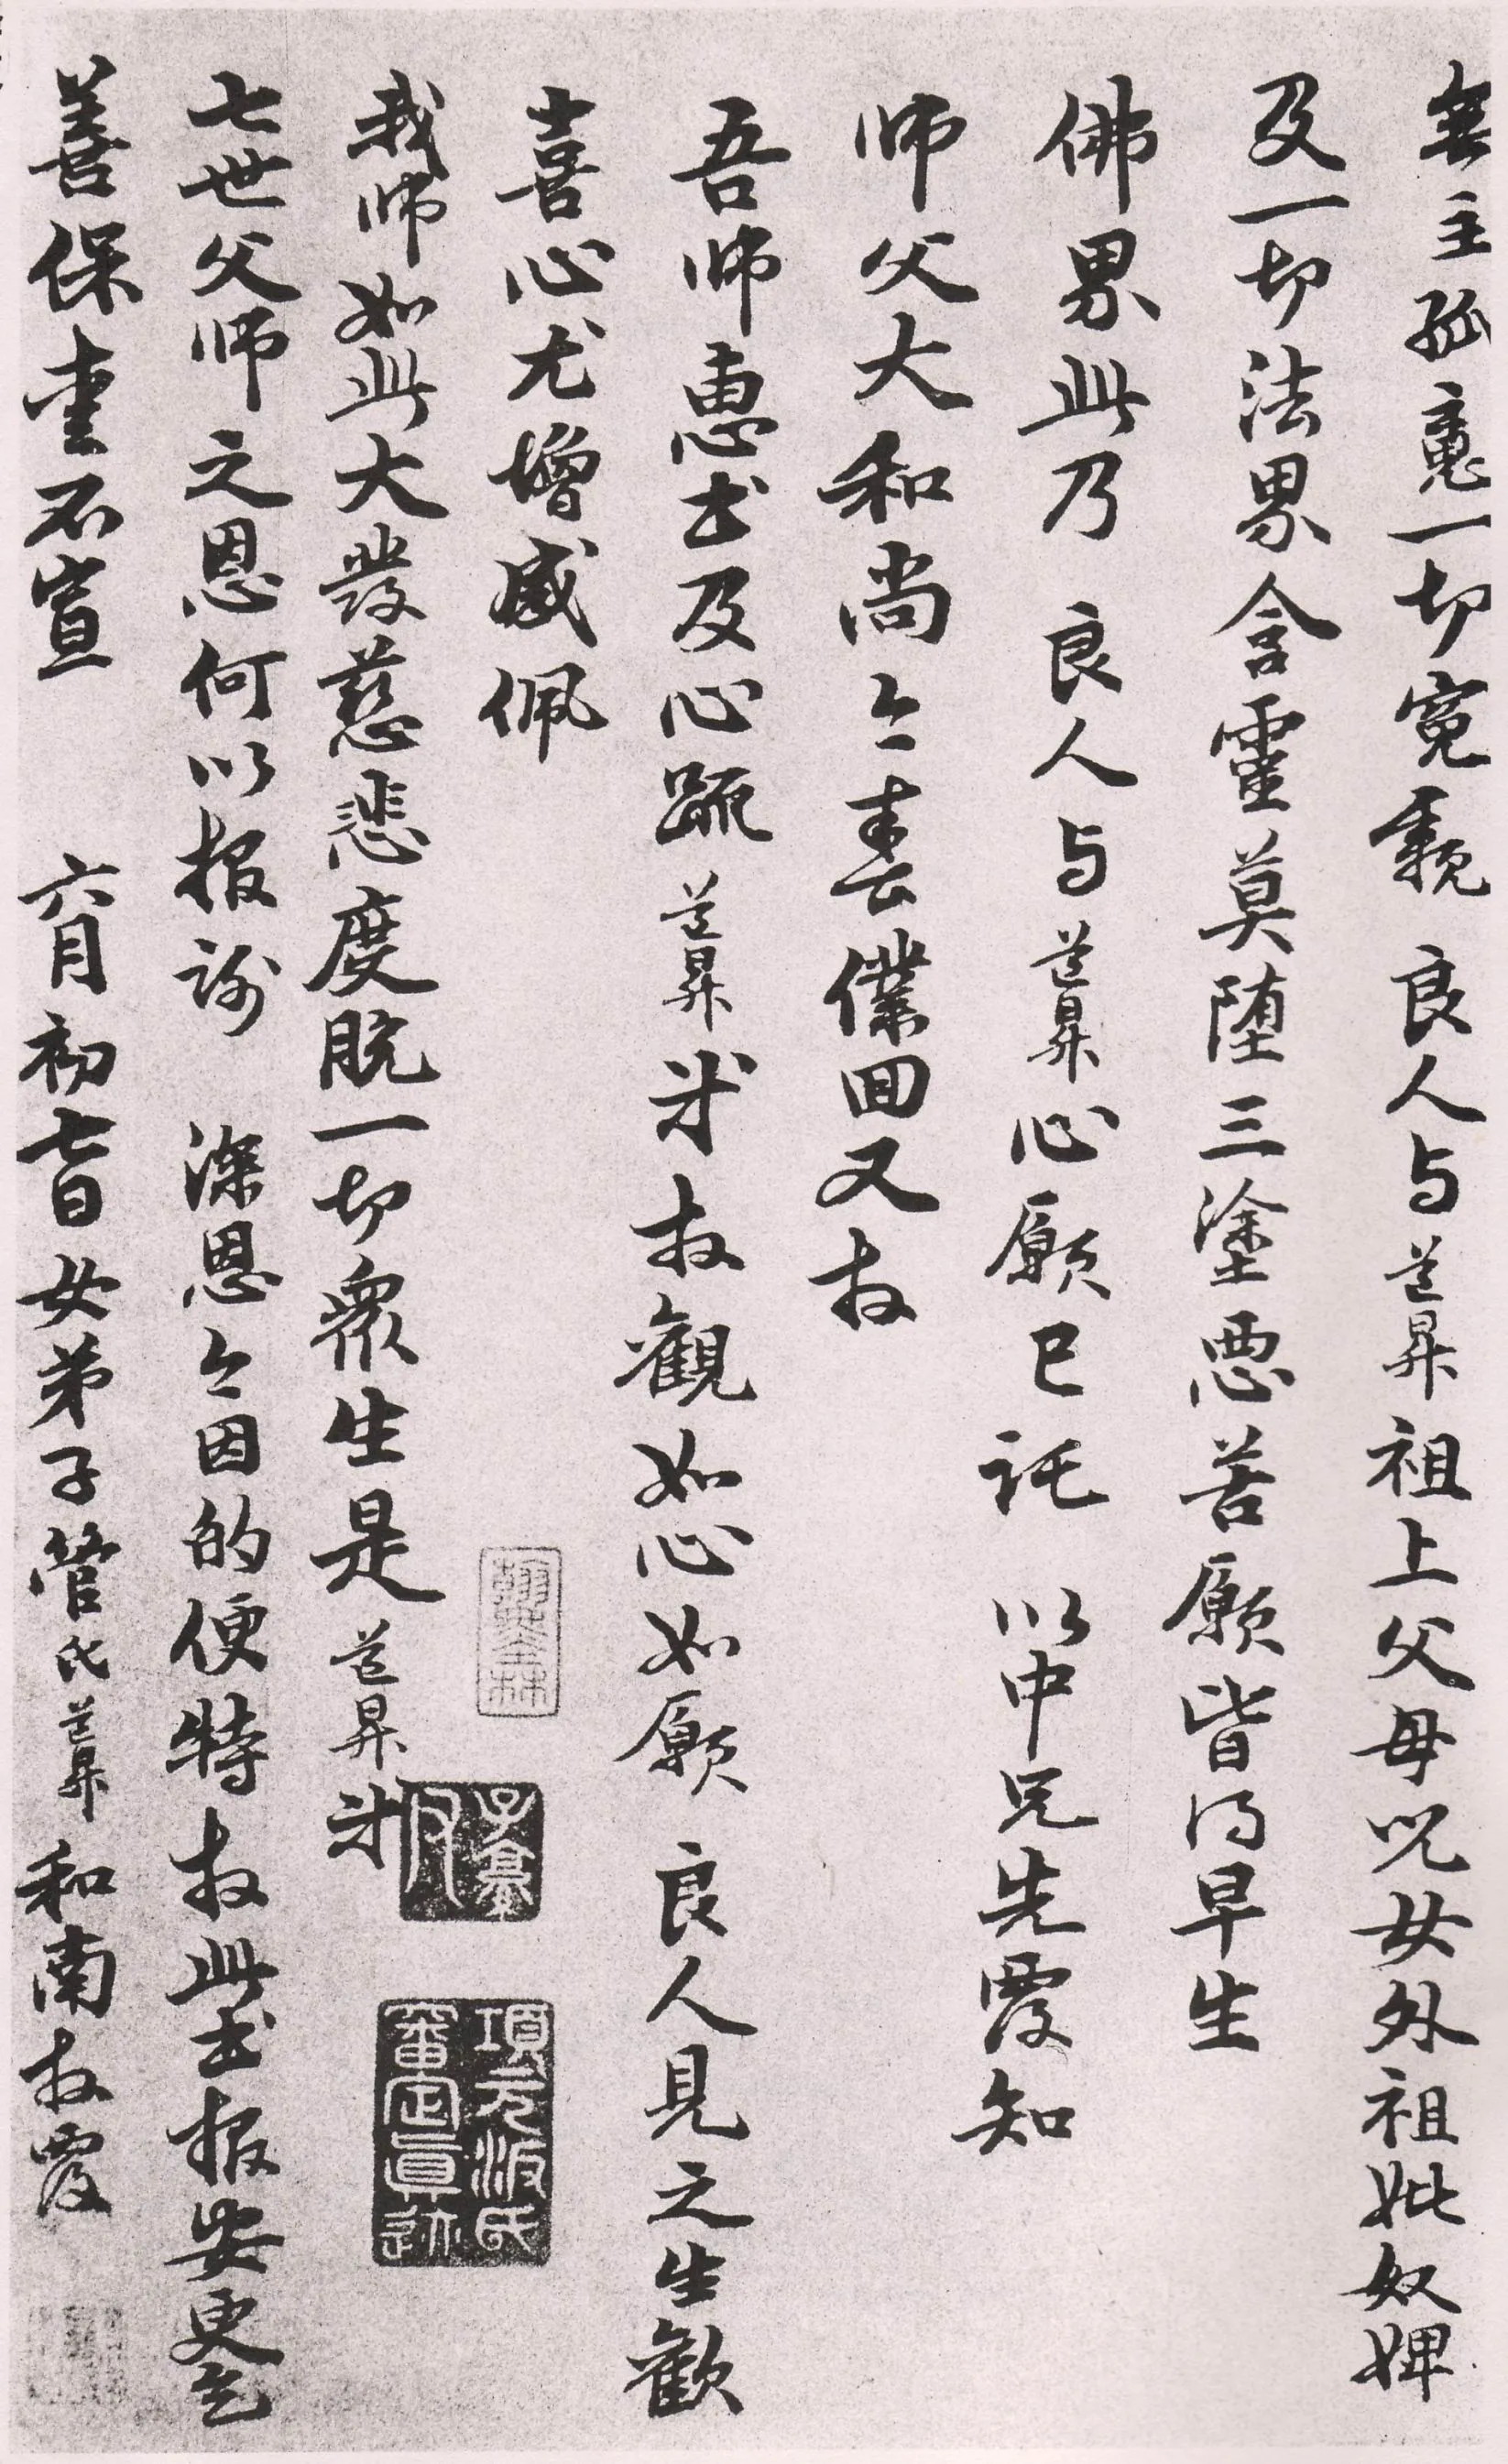 無主孤魂一切冤親良人与道昇祖上父母兒女外祖妣奴婢
及一切法界含靈莫堕三塗悪苦願皆得早生
佛界此乃良人与道昇心願已託以中兄先覆知
师父大和尚今春僕回又收
吾师惠书及心疏道昇来收觀如心如願良人見之生歡
喜心尤增感佩
我师如此大發慈悲度脱一切衆生是道昇来
七世父师之恩何以报謝深恩今因的便特收此书报安更乞
善保重不宣六月初七日女弟子管氏道昇和南收覆
子京父印
項元汴氏審定真跡